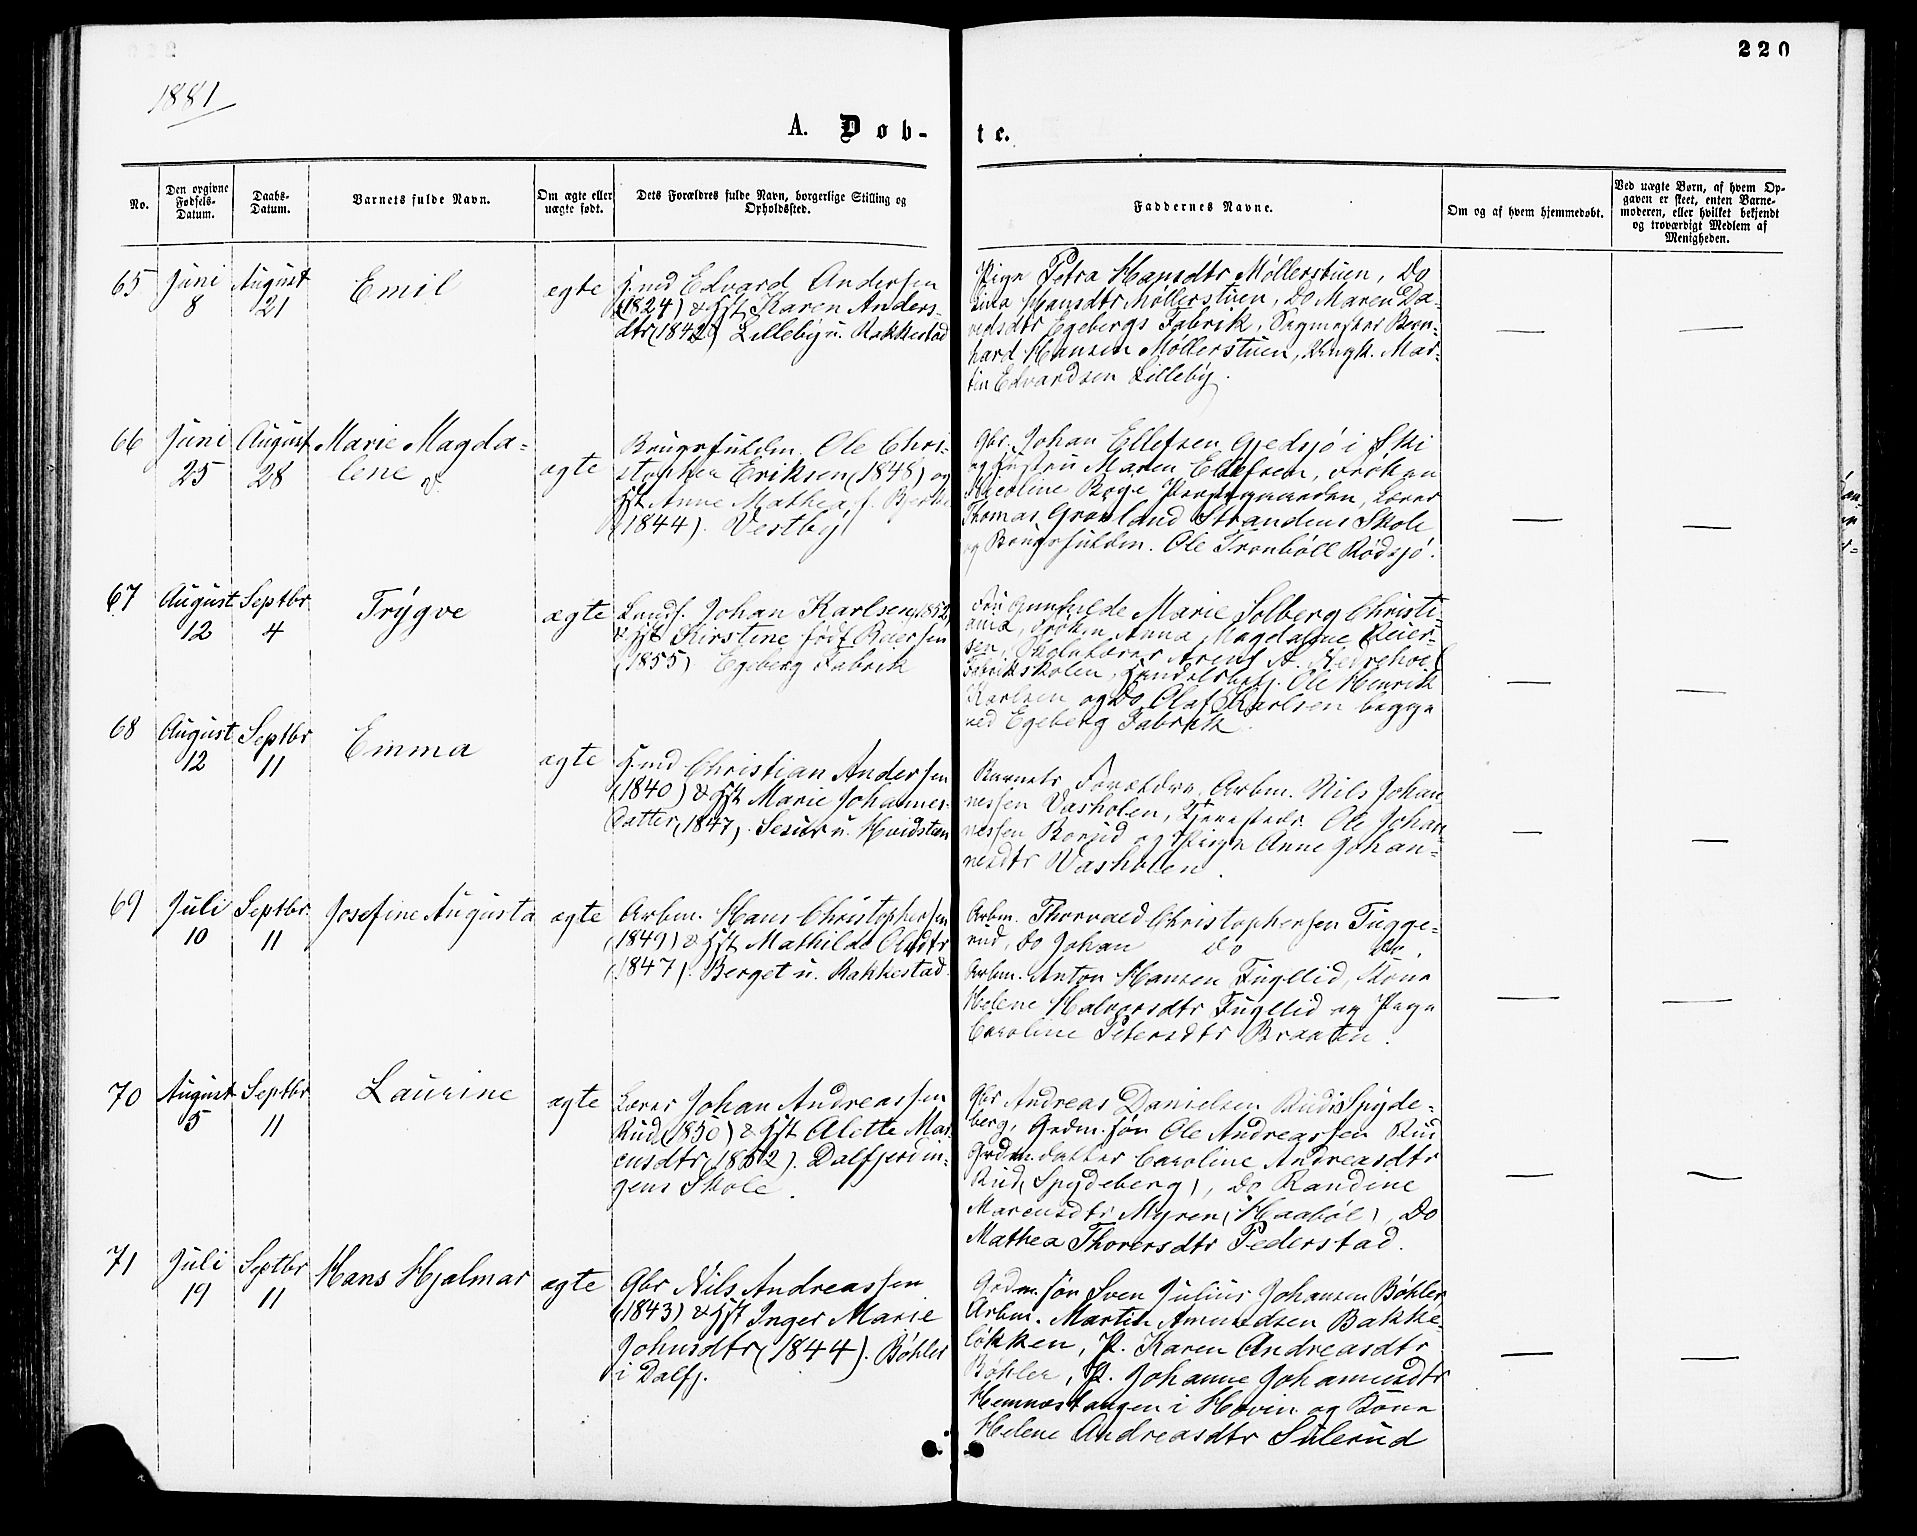 220
1881
A. Døb-
te.
No.
Den opgivne
Fødsels-
Datum.
Daabs-
Datum.
Barnets fulde Navn.
Om ægte eller
uægte født.
Dets Forældres fulde Navn, borgerlige Stilling og
Opholdssted.
Faddernes Navne.
Om og af hvem hjemmedøbt.
Ved uægte Børn, af hvem Op-
gaven er skeet, enten Barne-
moderen, eller hvilket bekjendt
og troværdigt Medlem af
Menigheden.
65
Juni
8
August
21
Emil
ægte
Edvard Andersen
(1824) & Karen Anders-
dtr (1842) Lilleby u. Rakkestad
Pige Petra Hansdtr Møllerstuen, Do
Hansdtr Møllerstuen, Do Maren Da-
Egebergs Fabrik, Sagmester Bern-
hard Hansen Møllerstuen, Ungk. Mar-
tin Edvardsen Lilleby.
66
Juni
25
August
28
Marie Magda-
lene
ægte
Brugsfuldm. Ole Chri-
stopher Eriksen (1848) og
Hst Anne Mathea f.
(1844). Vestby
Gbr. Johan Ellefsen Gjedsjø i Ski
og Hustru Maren Ellefsen, Frøken
Nicoline Bøge Præstegaarden, Lærer
Thomas Grønland Strandens Skole
og Brugsfuldm. Ole Tronbøll Rødsjø.
67
August
12
Septbr
4
Trygve
ægte
Landh. Johan Karlsen (1852)
& Hst Kirstine født Reiersen
(1855) Egeberg Fabrik
Fru Gunhilde Marie Solberg Christi-
ania, Frøken Anna Magdalene Reier-
sen, Skolelærer Arent A.
Fabrikskolen, Handelsbetj. Ole Henrik
Karlsen og Do Olaf Karlsen begge
ved Egeberg Fabrik.
68
August
12
Septbr
11
Emma
ægte
Christian Andersen
(1840) & Hst Marie Johannes-
datter (1847). u. Hvidsten
Barnets Forældre, Arbm. Nils Johan-
nessen Vasholen, Ole Johan-
nessen og Pige Anne Johan-
nesdtr Vasholen.
69
Juli
10
Septbr.
11
Josefine Augusta
ægte
Arbm. Hans Christophersen
(1849) & Hst Mathilde Olsdtr
(1847). Berget u. Rakkestad
Arbm. Thorvald Christophersen Tugge-
rud, Do Johan Do Do,
Arbm. Anton Hansen Fugllid, Kone
Helene Halvorsdtr Fugllid og Pige
Caroline Petersdtr Braaten.
70
August
5
Septbr
11
Laurine
ægte
Lærer Johan Andreassen
Rud (1850) & Hst Alette Mar-
cusdtr (1852). Dalfjerdin-
gens Skole.
Gbr Andreas Danielsen Rud i Spyde-
berg, Grdm. søn Ole Andreassen Rud
Grdm. datter Caroline Andreasdtr
Rud (Spydeberg), Do Randine
Marcusdtr Myren (Haabøl), Do
Mathea Thorersdtr Pederstad.
71
Juli
19
Septbr
11
Hans Hjalmar
ægte
Gbr Nils Andreassen
(1843) & Hst Inger Marie
Johnsdtr (1844). Bøhler
i Dalfj.
Grdm. søn Sven Julius Johansen Bøhler
Arbm. Martin Amundsen Bakke-
løkken, P. Karen Andreasdtr
Bøhler, P. Johanne Johannesdtr
Hemnestangen i Hovin og Kone
Helene Andreasdtr Sulerud